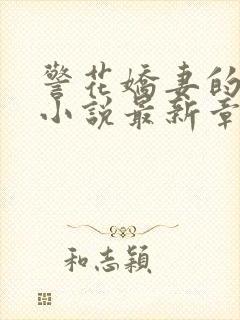 警花嬌妻的
小說最新章
和志穎